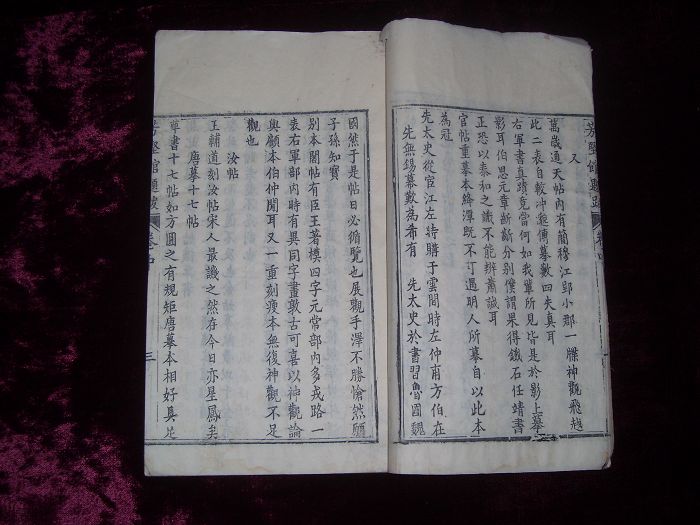 芳堅館題跋
卷四
又
萬歲通天帖內有簡穆江鄂小郡一牒神觀飛越
此二表自較沖遜傳摹數四失真耳
右軍書真蹟竟當何如我輩所見皆是於影上摹
影耳伯思元章斷斷分別僕謂果得鐵石任靖書
正恐以泰和之識不能辨蕭誠耳
官帖重摹本絳潭既不可遇明人所摹自以此本
為冠
先太史從宦江左時購于雲間時左仲甫方伯在
先無錫幕歎為希有 先太史於書習魯國魏
國然于是帖日必循覽也展觀手澤不勝愴然願
子孫知寶
別本閣帖有臣王著模四字元常部內多戎路一
表右軍部內時有異同字畫敦古可喜以神觀論
與顧本伯仲間耳又一重刻瘦本無復神觀不足
觀也
汝帖
王輔道刻汝帖宋人最譏之然在今日亦星鳳矣
唐摹十七帖
尊書十七帖如方圓之有規矩唐摹本相好具足
芳堅館題跋
卷四
三